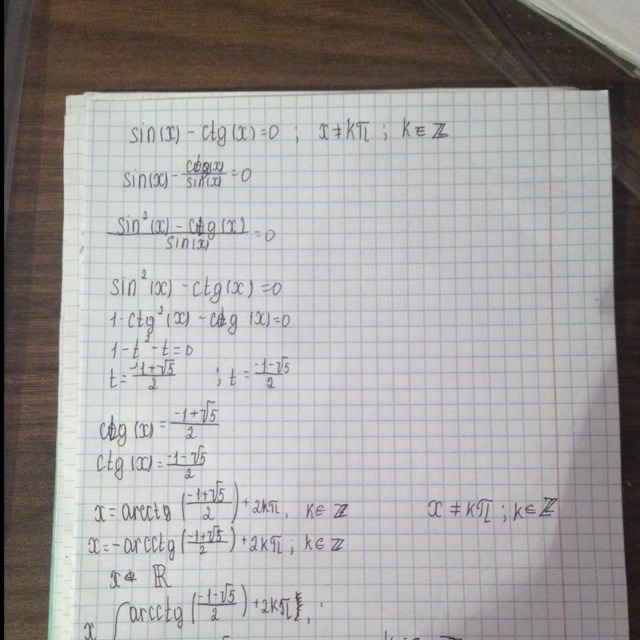 sin(x) - ctg(x) = 0 ; x ≠ kπ ; k ∈ ℤ
sin(x) - ctg(x)/sin(x) = 0
(sin²(x) - ctg(x))/sin(x) = 0
sin²(x) - ctg(x) = 0
1 - ctg²(x) - ctg(x) = 0
1 - t² - t = 0
t = (-1+√5)/2 ; t = (-1-√5)/2
ctg(x) = (-1+√5)/2
ctg(x) = (-1-√5)/2
x = arcctg((-1+√5)/2) + 2kπ, k ∈ ℤ x ≠ kπ ; k ∈ ℤ
x = -arcctg((-1+√5)/2) + 2kπ ; k ∈ ℤ
x ∉ ℝ
x { arcctg((-1-√5)/2) + 2kπ